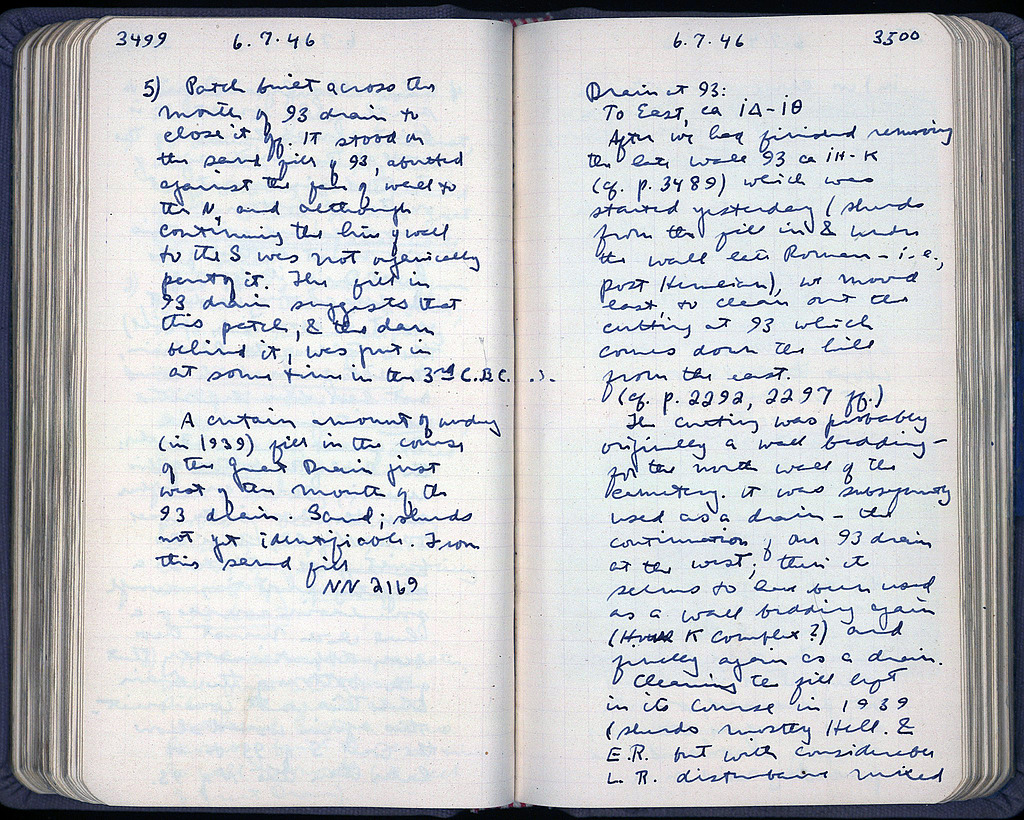 3499 6.7.46
5) Patch built across the
mouth of 93 drain to
close it off. It stood on
the sand fill of 93, abutted
against the face of wall to
the N, and although
continuing the line of wall
to the S was not organically
part of it. The fill in
93 drain suggests that
this patch, & the dam
behind it, was put in
at some time in the 3rd C. B.C.
A certain amount of
(in 1939) fill in the course
of the Great Drain just
west of the mouth of the
93 drain. Sand; sherds
not yet identifiable. From
this sand fill
NN 2169
6.7.46 3500
Drain at 93:
To East, ca ΙΔ-ΙΘ
After we had finished removing
the late wall 93 ca ΙΗ-Κ
(cf. p. 3489) which was
started yesterday (sherds
from the fill in & under
the wall late Roman - i.e.,
post Herulian), we moved
east, to clean out the
cutting at 93 which
comes down the hill
from the east.
(cf. p. 2292, 2297 ff.)
The cutting was probably
originally a wall bedding -
for the north wall of the
cemetery. It was subsequently
used as a drain - the
continuation of our 93 drain
at the west; then it
seems to have been used
as a wall bedding again
( K Complex?) and
finally again as a drain.
Cleaning the fill left
in its course in 1939
(sherds mostly Hell. &
E.R. but with considerable
L.R. disturbance mixed